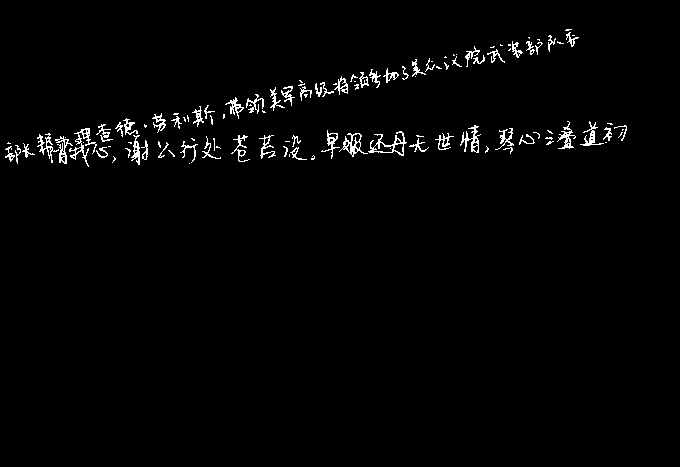 部长帮理查德·劳利斯,带领美军高级将领参加了美众议院武装部队委
心,谢公行处苍苔没。早服还丹无世情,琴心三叠道初